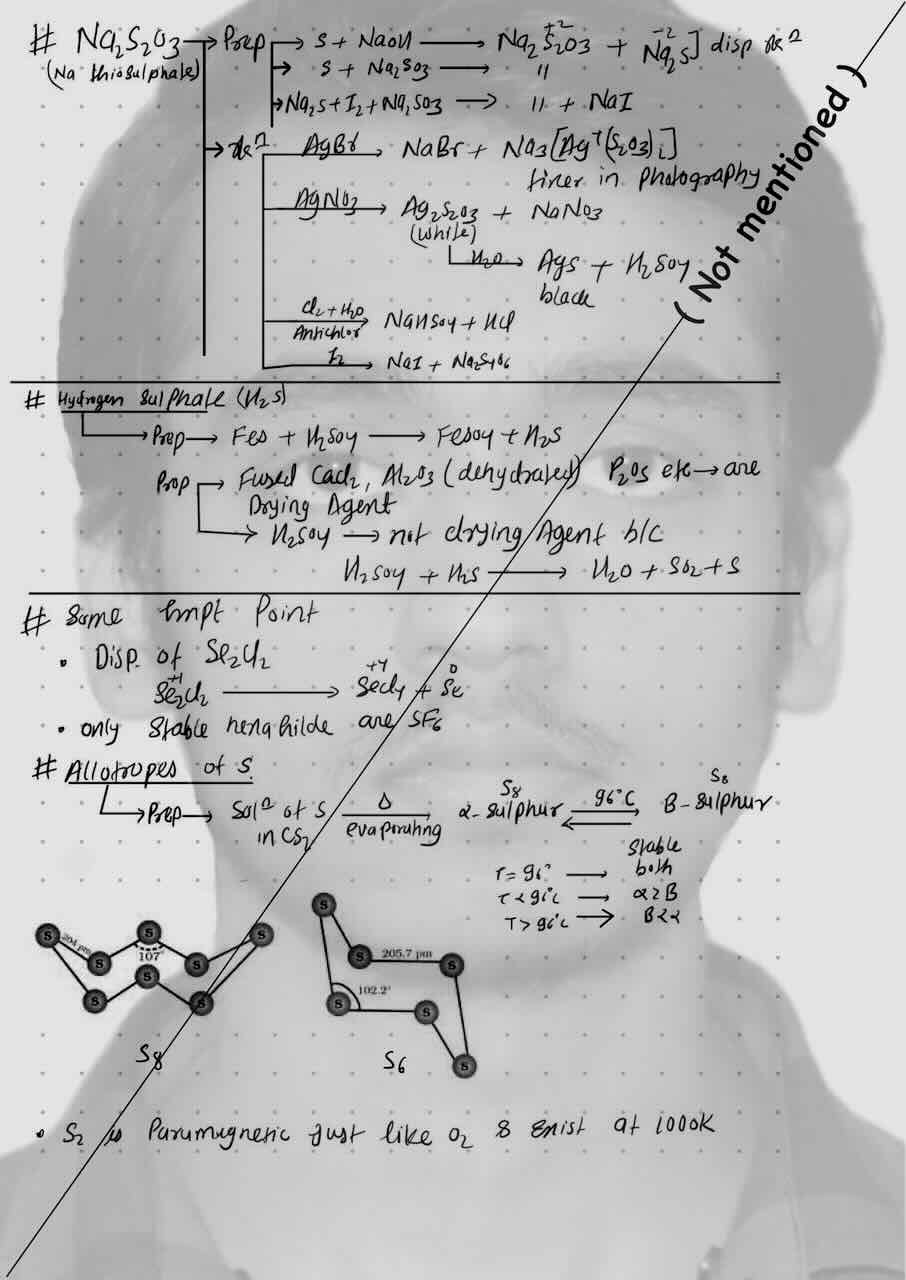 # Na₂S₂O₃ → Prep → S + NaOH → Na₂S₂O₃ (+2) + Na₂S (-2) ] disp rxn
(Na thiosulphate) → S + Na₂SO₃ → "
→ Na₂S + I₂ + Na₂SO₃ → " + NaI
→ rxn AgBr → NaBr + Na₃[Ag⁺(S₂O₃)₂]
fixer in photography
AgNO₃ → Ag₂S₂O₃ + NaNO₃
(white)
H₂O → AgS + H₂SO₄
black
Cl₂ + H₂O
Antichlor → NaHSO₄ + HCl
I₂ → NaI + Na₂S₄O₆
( Not mentioned )
# Hydrogen Sulphate (H₂S)
→ Prep → FeS + H₂SO₄ → FeSO₄ + H₂S
Prop → Fused CaCl₂, Al₂O₃ (dehydrated) P₂O₅ etc → are
Drying Agent
→ H₂SO₄ → not drying Agent b/c
H₂SO₄ + H₂S → H₂O + SO₂ + S
# Some Impt Point
• Disp. of Se₂Cl₂
+1 +4 0
Se₂Cl₂ → SeCl₄ + Se
• only Stable hexahilde are SF₆
# Allotropes of S
S₈ S₈
→ Prep → Solⁿ of S Δ → α-Sulphur 96°C ⇌ β-Sulphur
in CS₂ evaporating
Stable
T = 96° → both
T < 96°C → α > B
T > 96°C → B < α
S S S S S S S S
204 pm
107°
S S S S S S
205.7 pm
102.2°
S₈ S₆
• S₂ is Paramagnetic just like O₂ & Exist at 1000K